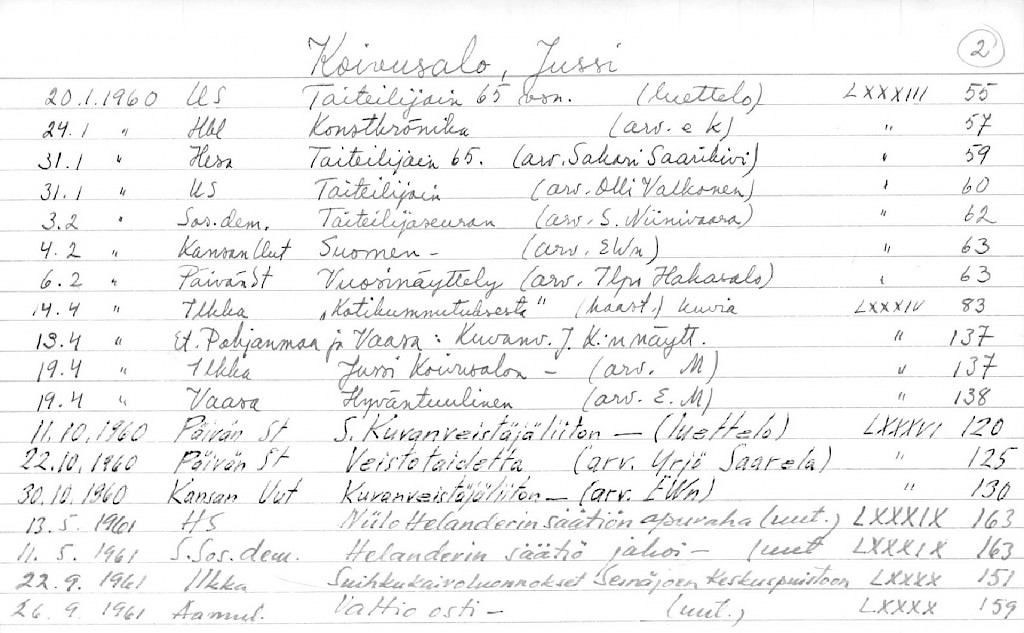 2
Koivusalo, Jussi
20.1.1960 US Taiteilijain 65 vsn. (luettelo) LXXXIII 55
24.1 " Hbl Konstkrönika (arv. e k) " 57
31.1 " Hesa Taiteilijain 65. (arv. Sakari Saarikivi) " 59
31.1 " US Taiteilijain (arv. Olli Valkonen) " 60
3.2 " Sos.dem. Taiteilijaseuran (arv. S. Niinivaara) " 62
4.2 " Kansan Uut Suomen - (arv. EWn) " 63
6.2 " Päivän St Vuosinäyttely (arv. Ilpu Hakasalo) " 63
14.4 " Ilkka "Kotikummutuksesta" (haast.) kuvia LXXXIV 83
13.4 " Et. Pohjanmaa ja Vaasa : Kuvanv. J. K:n näytt. " 137
19.4 " Ilkka Jussi Koivusalon - (arv. M) " 137
19.4 " Vaasa Hyväntuulinen (arv. E. M) " 138
11.10.1960 Päivän St S. Kuvanveistäjäliiton - (luettelo) LXXXVI 120
22.10.1960 Päivän St Veistotaidetta (arv. Yrjö Saarela) " 125
30.10.1960 Kansan Uut Kuvanveistäjäliiton - (arv. EWn) " 130
13.5.1961 HS Niilo Helanderin säätiön apuraha (uut.) LXXXIX 163
11.5.1961 S.Sos.dem. Helanderin säätiö jakoi - (uut LXXXIX 163
22.9.1961 Ilkka Suihkukaivoluonnokset Seinäjoen Keskuspuistoon LXXXX 151
26.9.1961 Aamul. Valtio osti - (uut.) LXXXX 159